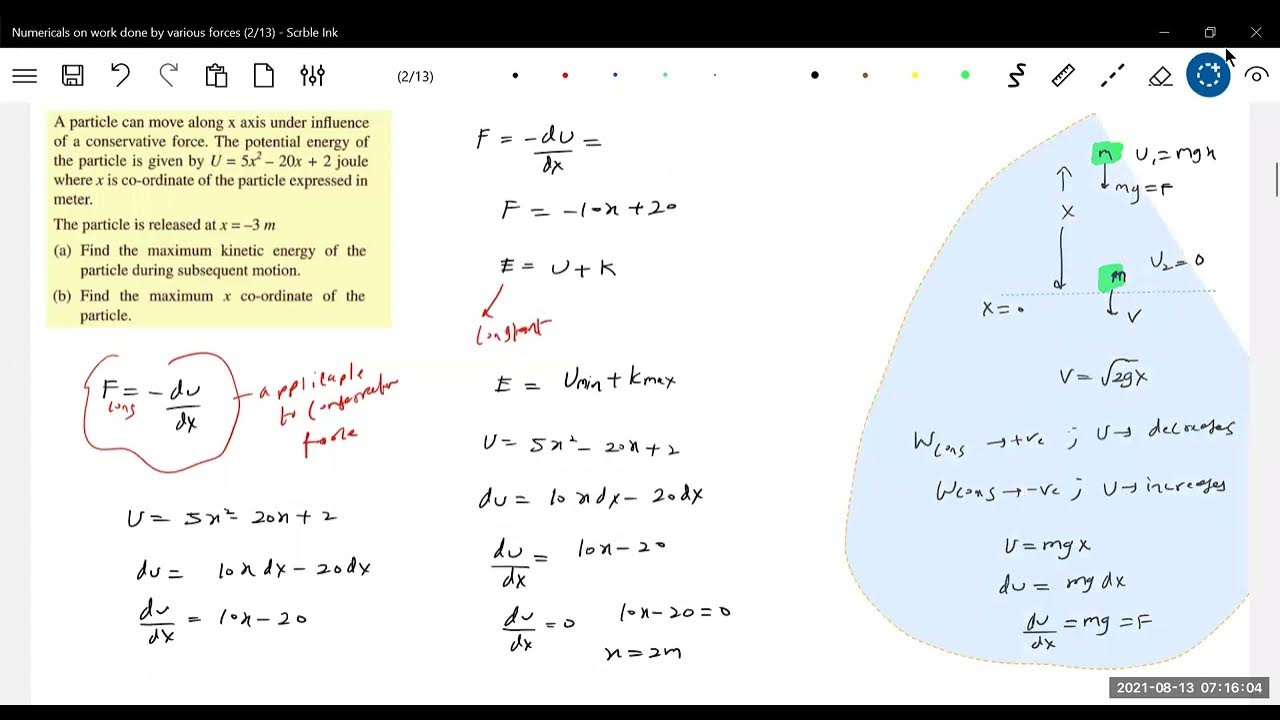 Numericals on work done by various forces (2/13) - Scrble Ink
(2/13)
A particle can move along x axis under influence
of a conservative force. The potential energy of
the particle is given by U = 5x² – 20x + 2 joule
where x is co-ordinate of the particle expressed in
meter.
The particle is released at x = –3 m
(a) Find the maximum kinetic energy of the
particle during subsequent motion.
(b) Find the maximum x co-ordinate of the
particle.
F = - du/dx
cons
applicable
to conservative
force
U = 5x² - 20x + 2
du = 10x dx - 20dx
du/dx = 10x - 20
F = - dU/dx =
F = -10x + 20
E = U + K
constant
E = Umin + Kmax
U = 5x² - 20x + 2
du = 10x dx - 20dx
du/dx = 10x - 20
du/dx = 0 10x - 20 = 0
x = 2m
m U₁ = mgx
mg = F
x
m U₂ = 0
x = 0
v
V = √2gx
Wcons → +ve ; U → decreases
Wcons → -ve ; U → increases
U = mgx
du = mg dx
du/dx = mg = F
2021-08-13 07:16:04